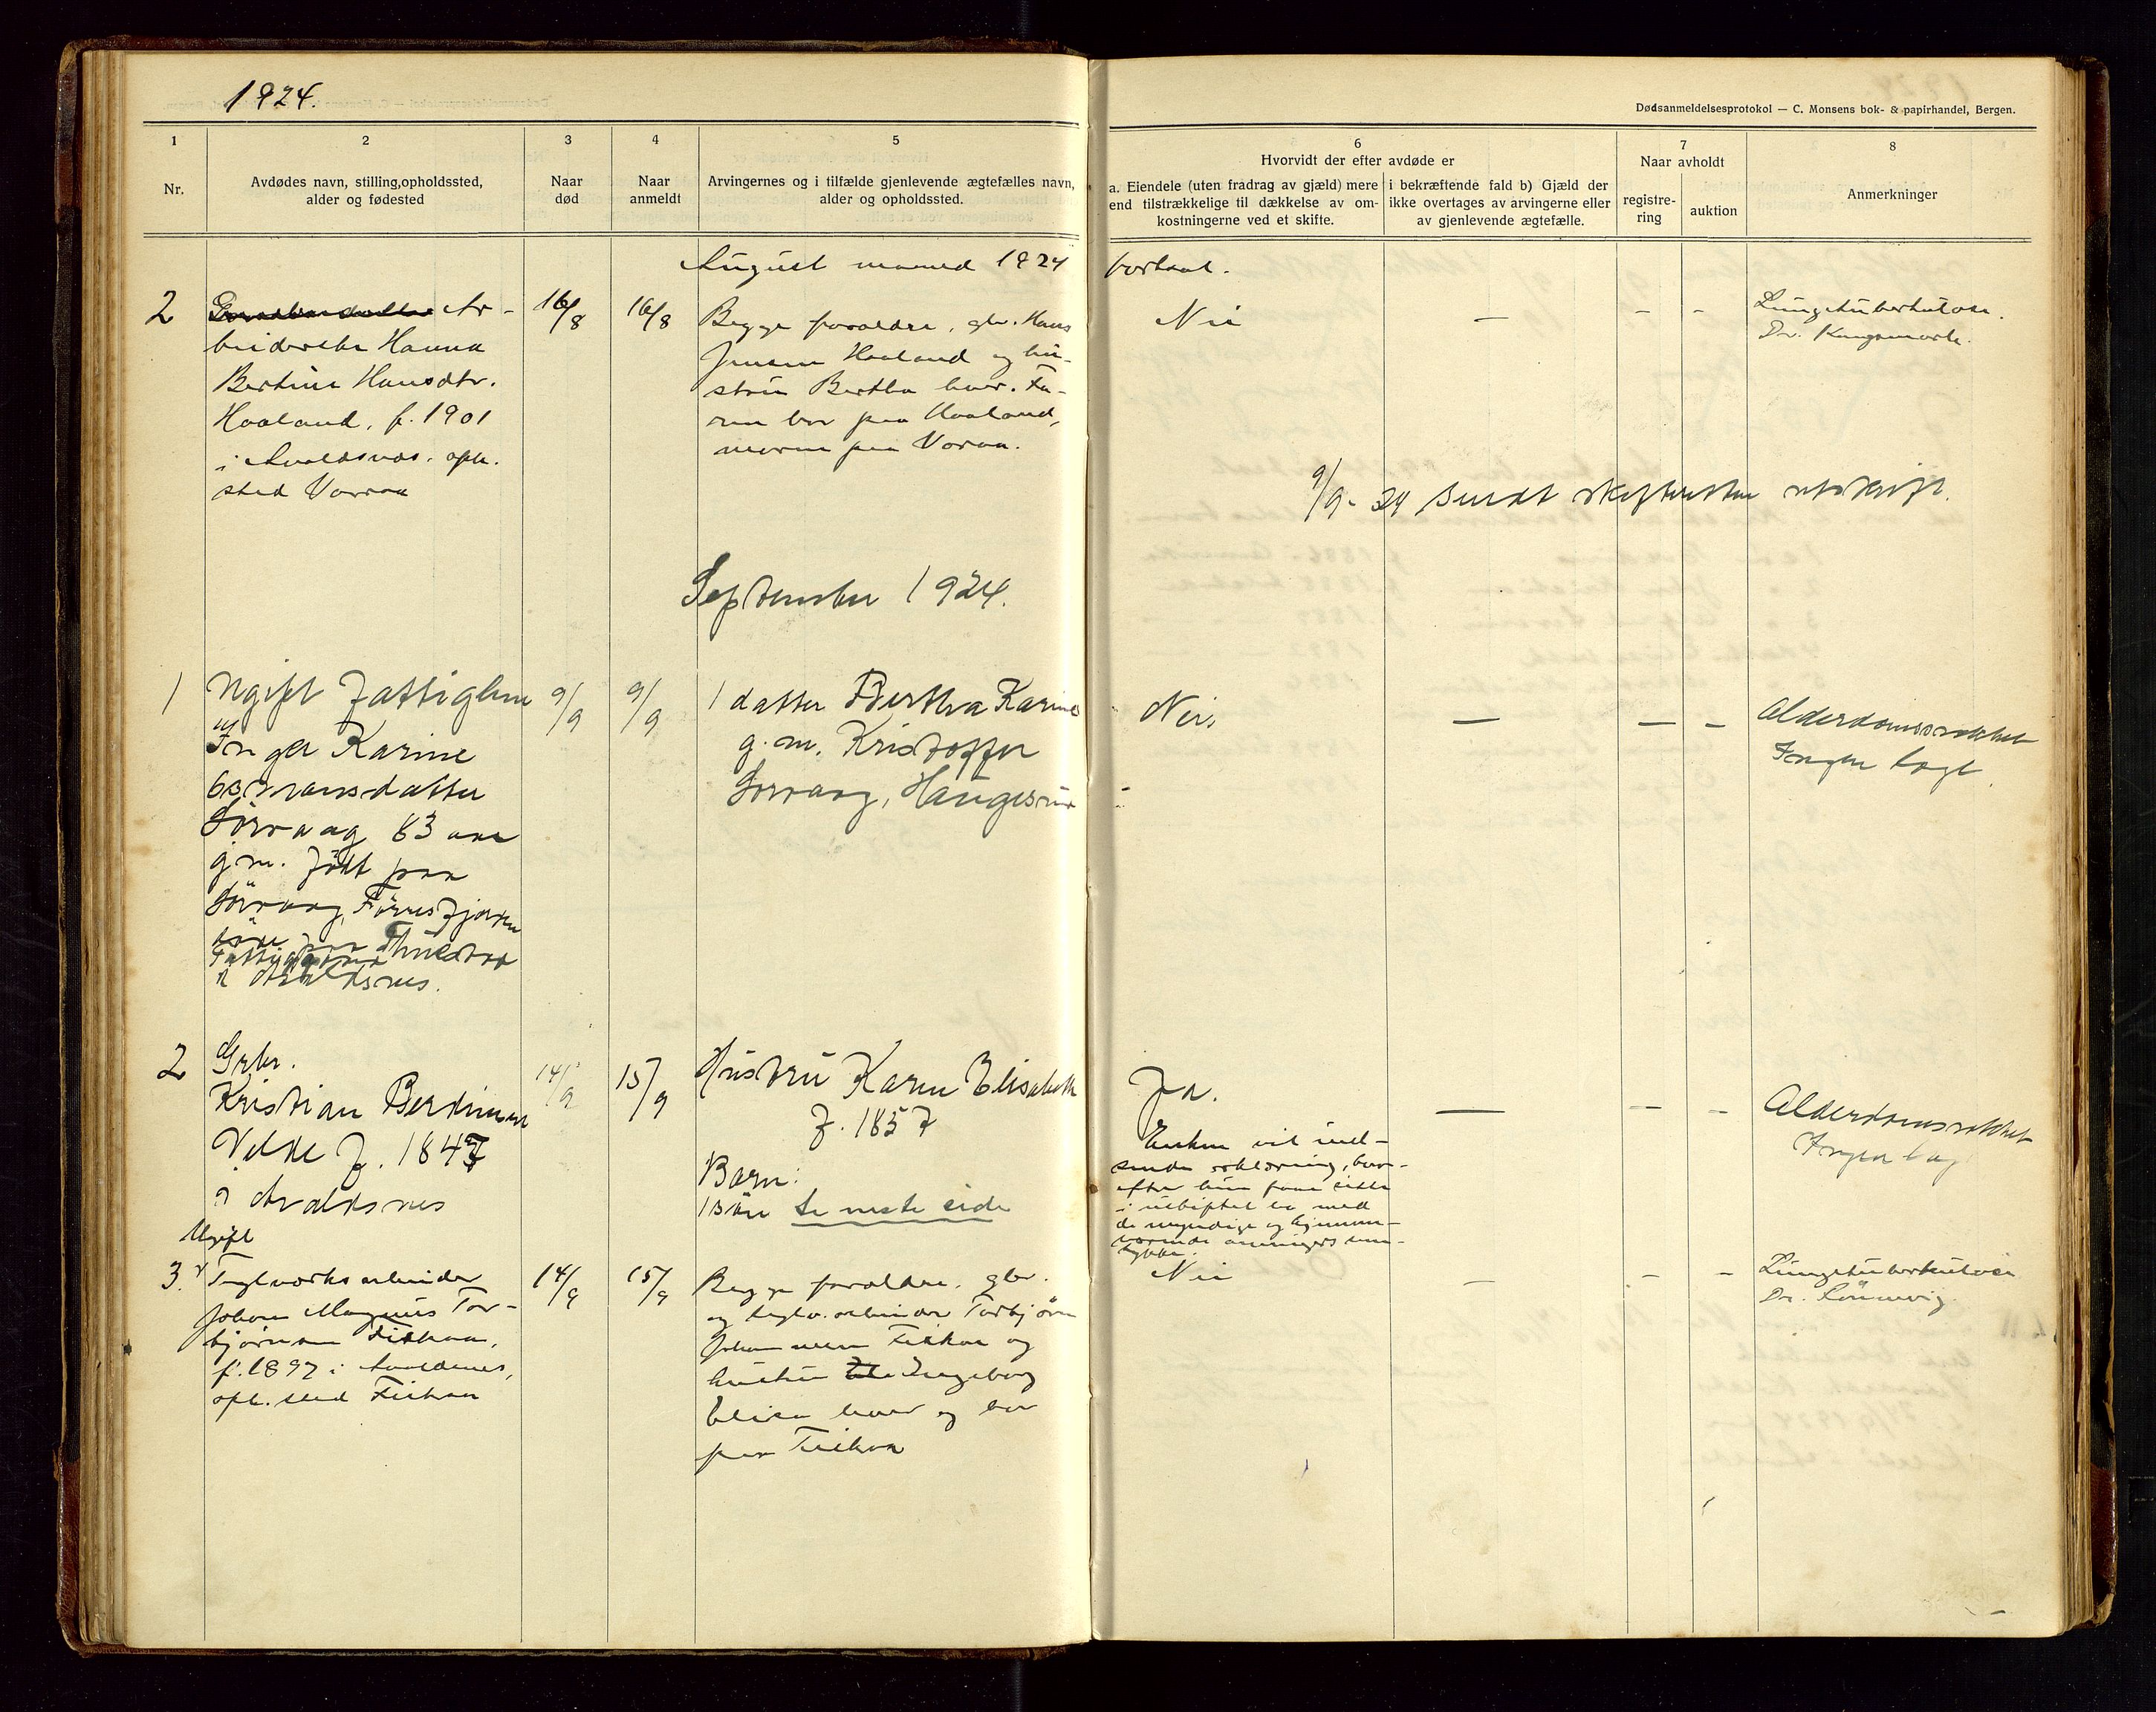 1924.
Dødsanmeldelsesprotokol — C. Monsens bok- & papirhandel, Bergen.
1
2
3
4
5
6
7
8
Nr.
Avdødes navn, stilling, opholdssted,
alder og fødested
Naar
død
Naar
anmeldt
Arvingernes og i tilfælde gjenlevende ægtefælles navn,
alder og opholdssted.
Hvorvidt der efter avdøde er
a. Eiendele (uten fradrag av gjæld) mere
end tilstrækkelige til dækkelse av om-
kostningerne ved et skifte.
i bekræftende fald b) Gjæld der
ikke overtages av arvingerne eller
av gjenlevende ægtefælle.
Naar avholdt
registre-
ring
auktion
Anmerkninger
August maaned 1924 fortsat.
2
Ar-
beiderske Hanna
Bertine Hansdtr.
Haaland, f. 1901
i Avaldsnes. oph.
sted Vorraa
16/8
16/8
Begge foraldre, gbr. Hans
Jensen Haaland og hu-
stru Bertha lever. Fa-
ren bor paa Haaland,
moren paa Voraa.
Nei
—
-
-
Lungetuberkulose.
Dr.
9/9-24 sendt skifteretten utskrift.
September 1924.
1
Ugift Fattiglem
Inger Karine
Østensdatter
Sörvaag 83 aar
g.m. født paa
Sörvaag, Förresfjorden
i Avaldsnes.
9/9
9/9
1 datter Bertha Karine
g.m. Kristoffer
Sörvaag, Haugesund
Nei.
—
—
-
Alderdomssvækket
Ingen læge.
2
Grbr.
Kristian Berdinesen
Velde f. 1847
i Avaldsnes
14/9
15/9
Hustru Karen Elisabeth
f. 1857
Barn:
se neste side
Ja.
Enken vil ind-
sende erklæring, hvor-
efter hun faar sitte
i uskiftet bo med
de myndige og hjemme-
værende arvingers sam-
tykke.
—
—
-
Alderdomssvækket
Ingen læge
Ugift
3.
Teglverksarbeider
Johan Magnus Tor-
bjørnsen Fiskaa,
f. 1897 i Avaldsnes,
oph. sted Fiskaa
14/9
15/9
Begge foraldre, gbr.
og teglv.arbeider Torbjørn
Johannesen Fiskaa og
hustru Ingeborg
Elisa lever og bor
paa Fiskaa
Nei
-
-
-
Lungetuberkulose
Dr.